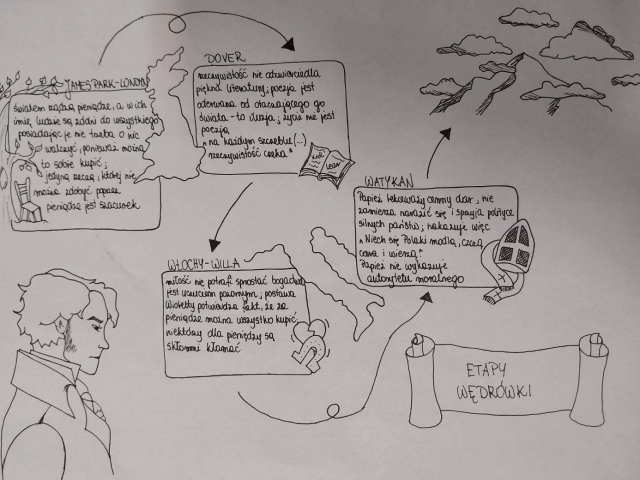 JAMES PARK - LONDYN
światem rządzą pieniądze, a w ich
imię, ludzie są zdolni do wszystkiego
posiadając je nie trzeba o nic
walczyć, ponieważ można
to sobie kupić;
jedyną rzeczą, której nie
można zdobyć poprzez
pieniądze jest szacunek
DOVER
rzeczywistość nie odzwierciedla
piękna literatury; poezja jest
oderwana od otaczającego go
świata - to iluzja; życie nie jest
poezją
"na każdym szczeblu (...)
rzeczywistość czeka"
KRÓL
LEAR
WŁOCHY-WILLA
miłość nie potrafi sprostać bogactwu
jest uczuciem pozornym; postawa
Wioletty potwierdza fakt, że za
pieniądze można wszystko kupić
niektórzy dla pieniędzy są
skłonni kłamać
WATYKAN
Papież lekceważy cenny dar, nie
zamierza narazić się i sprzyja polityce
silnych państw; nakazuje więc
"Niech się Polaki modlą, czczą
cara i wierzą"
Papież nie wykazuje
autorytetu moralnego
ETAPY
WĘDRÓWKI